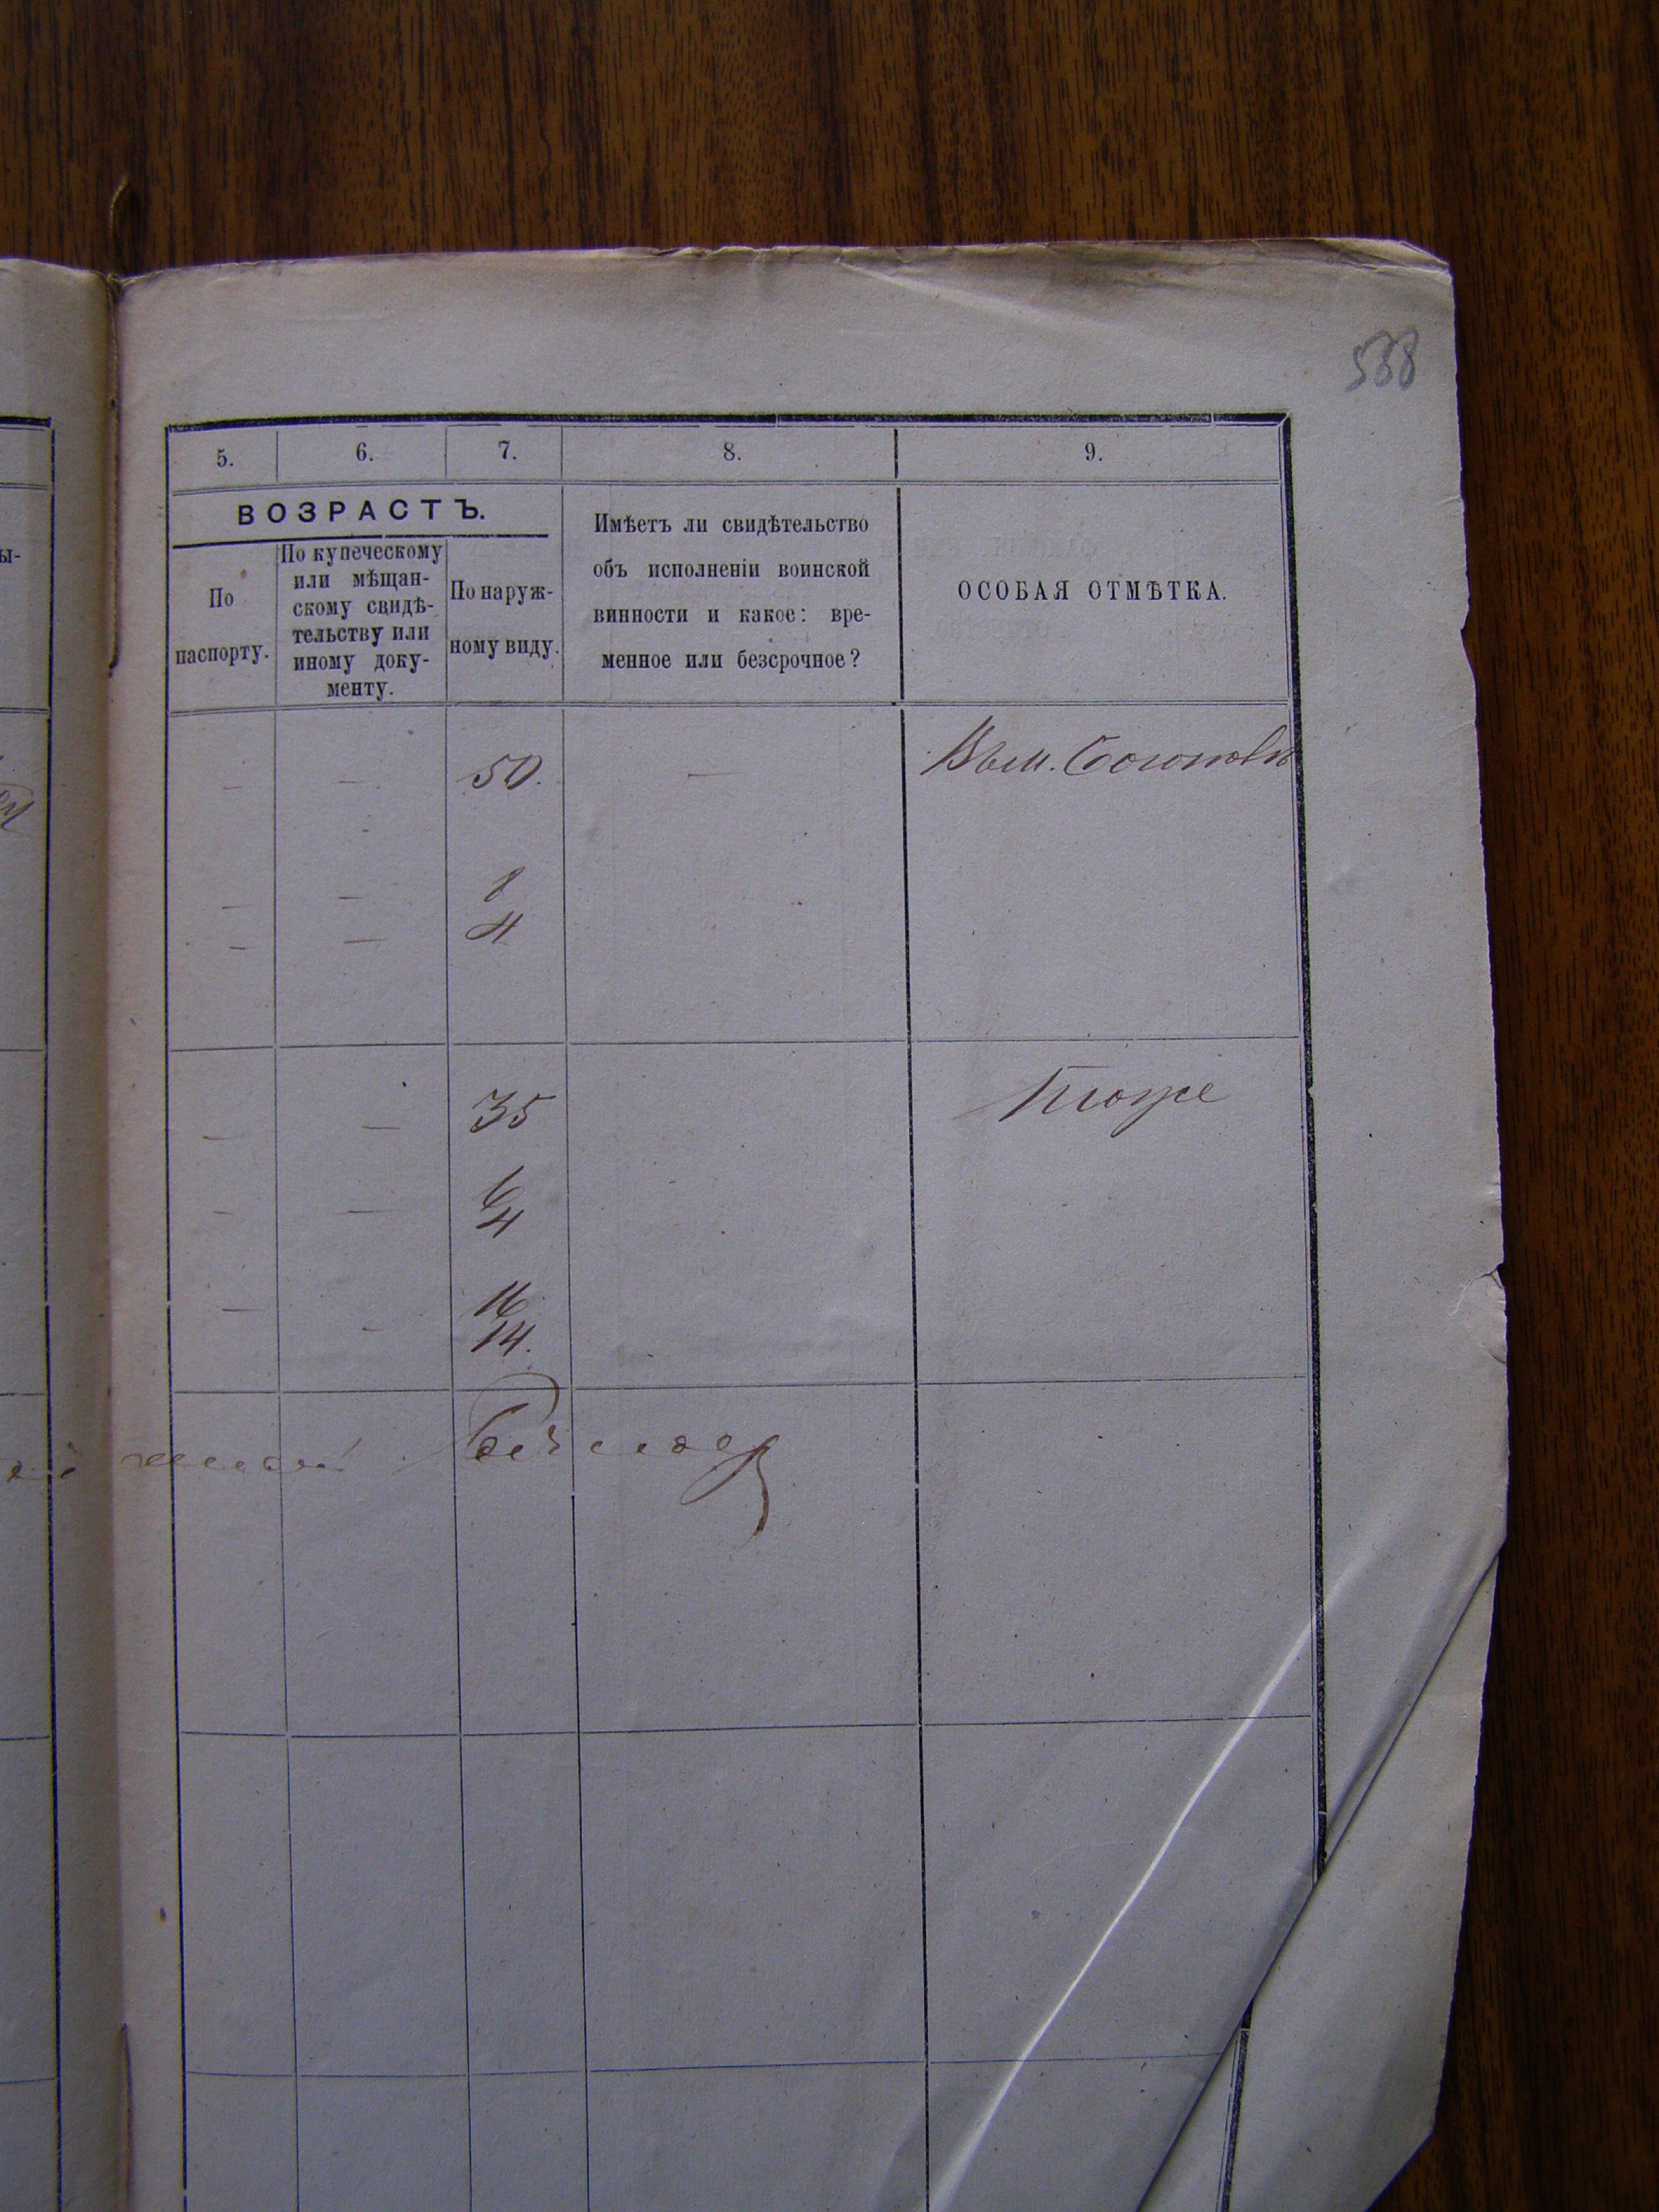 588
5. 6. 7. 8. 9.
ВОЗРАСТЪ.
По
паспорту.
По купеческому
или мѣщан-
скому свидѣ-
тельству или
иному доку-
менту.
По наруж-
ному виду.
Имѣетъ ли свидѣтельство
объ исполненіи воинской
винности и какое: вре-
менное или безсрочное?
ОСОБАЯ ОТМѢТКА.
ы-
— — 50. —
— — 8
— — 4
— — 35 Тоже
— — 6
4
— 16
- 14.